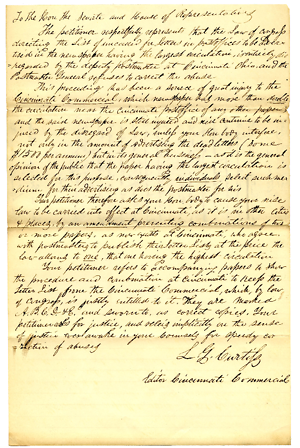 To the Hon the Senate and House of Representatives
The petitioner respectfully represents that the Law of Congress
directing the List of uncalled for letters in postoffices to be
in the newspaper having the largest circulation, is
regarded by the deputy postmaster at Cincinnati Ohio, and the
Postmaster General refuses to correct the abuse.
This proceeding has been a source of great injury to the
Cincinnati Commercial, which newspaper has more than double
the circulation near the Cincinnati postoffice of any other paper
and the said newspaper is still injured and will continue to be in-
jured by the disregard of Law, unless your Hon body interfere,
not only in the amount of advertising the dead letters (some
per annum) but in its general business - as it is the general
opinion of the public that the paper having the largest circulation is
selected for this purpose, consequently individuals select such
for their advertising as does the postmaster for his
Your petitioner therefore asks your Hon body to cause your wise
Law to be carried into effect at Cincinnati, as it is in other cities
& places, by an amendment preventing combinations, where there
is more papers, as now exists at Cincinnati, who
with postmasters to publish their Letter Lists at the price the
law allows to one, that one having the highest circulation
Your petitioner refers to accompanying papers to show
the procedure and combination at Cincinnati to keep the
Letter List from the Cincinnati Commercial, which, by law
of Congress, is justly entitled to it. They are marked
A. B. C. D & E. and sworn to, as correct copies. Your
petitioner asks for justice, and relies implicitly on the sense
of justice in your Counsels for speedy co-
rrection of abuses
L. G. Curtiss
Editor Cincinnati Commercial